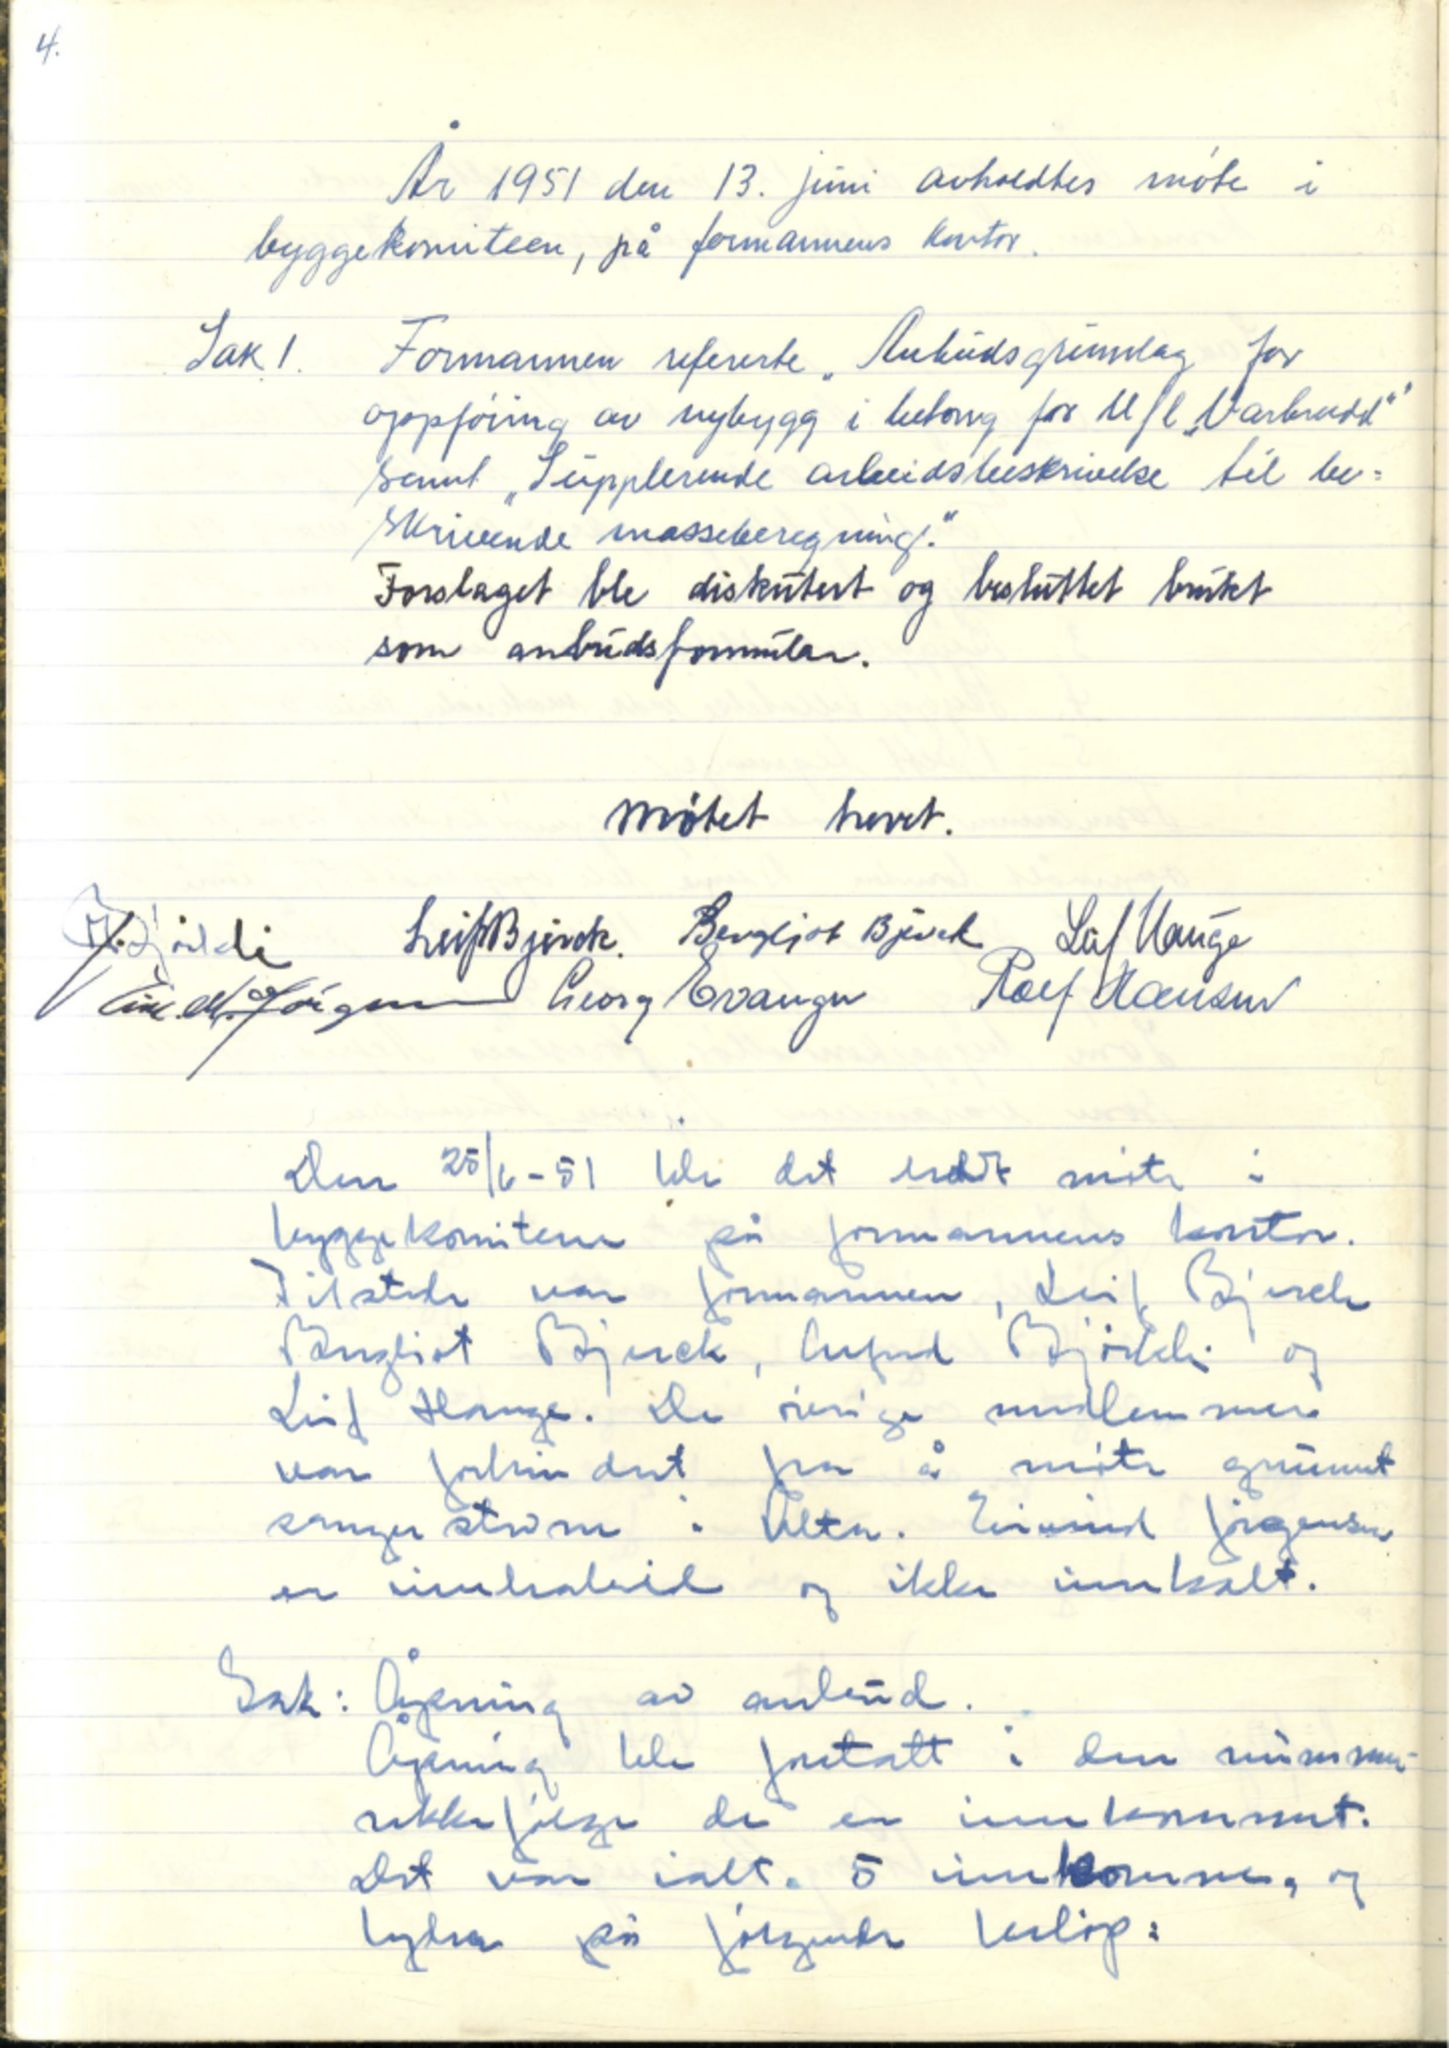 4.
År 1951 den 13. juni avholdtes møte i
byggekomiteen, på formannens kontor.
Sak 1. Formannen refererte „Anbudsgrunnlag for
oppføring av nybygg i betong for U/l „Varbrudd"
samt „Supplerende arbeidsbeskrivelse til be=
skrivende masseberegning."
Forslaget ble diskutert og besluttet brukt
som anbudsformular.
Møtet hevet.
Leif Bjerck. Bergljot Bjerck Leif Hauge
Georg Evanger Rolf Hansen
Den 25/6-51 ble det holdt møte i
byggekomiteen på formannens kontor.
Tilstede var formannen, Leif Bjerck
Bergliot Bjerck, Bjørkli og
Leif Hauge. De øvrige medlemmer
var forhindret fra å møte grunnet
sangerstevne i Alta. Jørgensen
er og ikke innkalt.
Sak: Åpning av anbud.
Åpning ble foretatt i den nummer-
rekkefølge de er innkommet.
Det var ialt. 5 innkomne, og
lydra på følgende beløp: